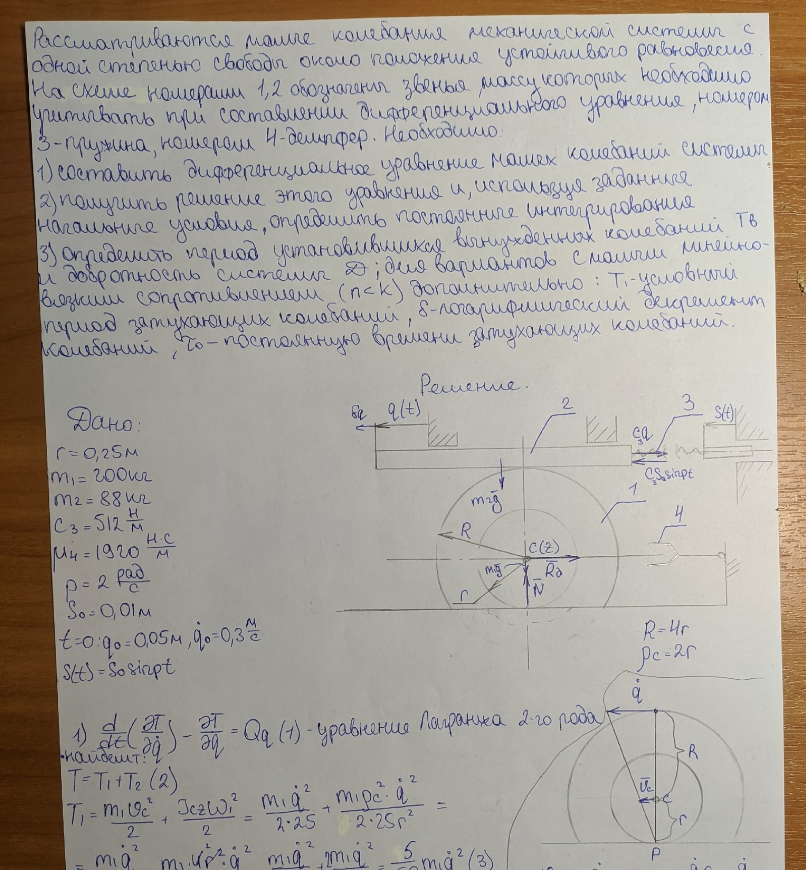 Рассматриваются малые колебания механической системы с
одной степенью свободы около положения устойчивого равновесия.
На схеме номерами 1,2 обозначены звенья, массу которых необходимо
учитывать при составлении дифференциального уравнения, номером
3-пружина, номером 4-демпфер. Необходимо:
1) составить дифференциальное уравнение малых колебаний системы
2) получить решение этого уравнения и, используя заданные
начальные условия, определить постоянные интегрирования
3) определить период установившихся вынужденных колебаний Tв
и добротность системы ; для вариантов с малым линейно-
вязким сопротивлением (n<k) дополнительно: T₁-условный
период затухающих колебаний, δ-логарифмический декремент
колебаний, τ₀-постоянную времени затухающих колебаний.
Решение.
Дано:
r = 0,25м
m₁ = 200кг
m₂ = 88кг
c₃ = 512 Н/м
μ₄ = 1920 Н·с/м
p = 2 рад/с
S₀ = 0,01м
t=0: q₀=0,05м, q̇₀=0,3 м/с
s(t) = S₀sinpt
δq q(t) 2 3 S(t)
c₃q
c₃S₀sinpt
m₂g̅
1
R
4
C(z)
m₁g̅ R̅д
r N̅
R=4r
ρc=2r
1) d/dt(∂T/∂q̇) - ∂T/∂q = Qq (1) - уравнение Лагранжа 2-го рода
найдем:
T = T₁+T₂ (2)
T₁ = m₁ϑc²/2 + Jczω₁²/2 = m₁q̇²/2·25 + m₁ρc²·q̇²/2·25r² =
q̇
R
V̅c C
r
P
= m₁q̇ m₁4r²·q̇² m₁q̇ = 5 m₁q̇² (3)